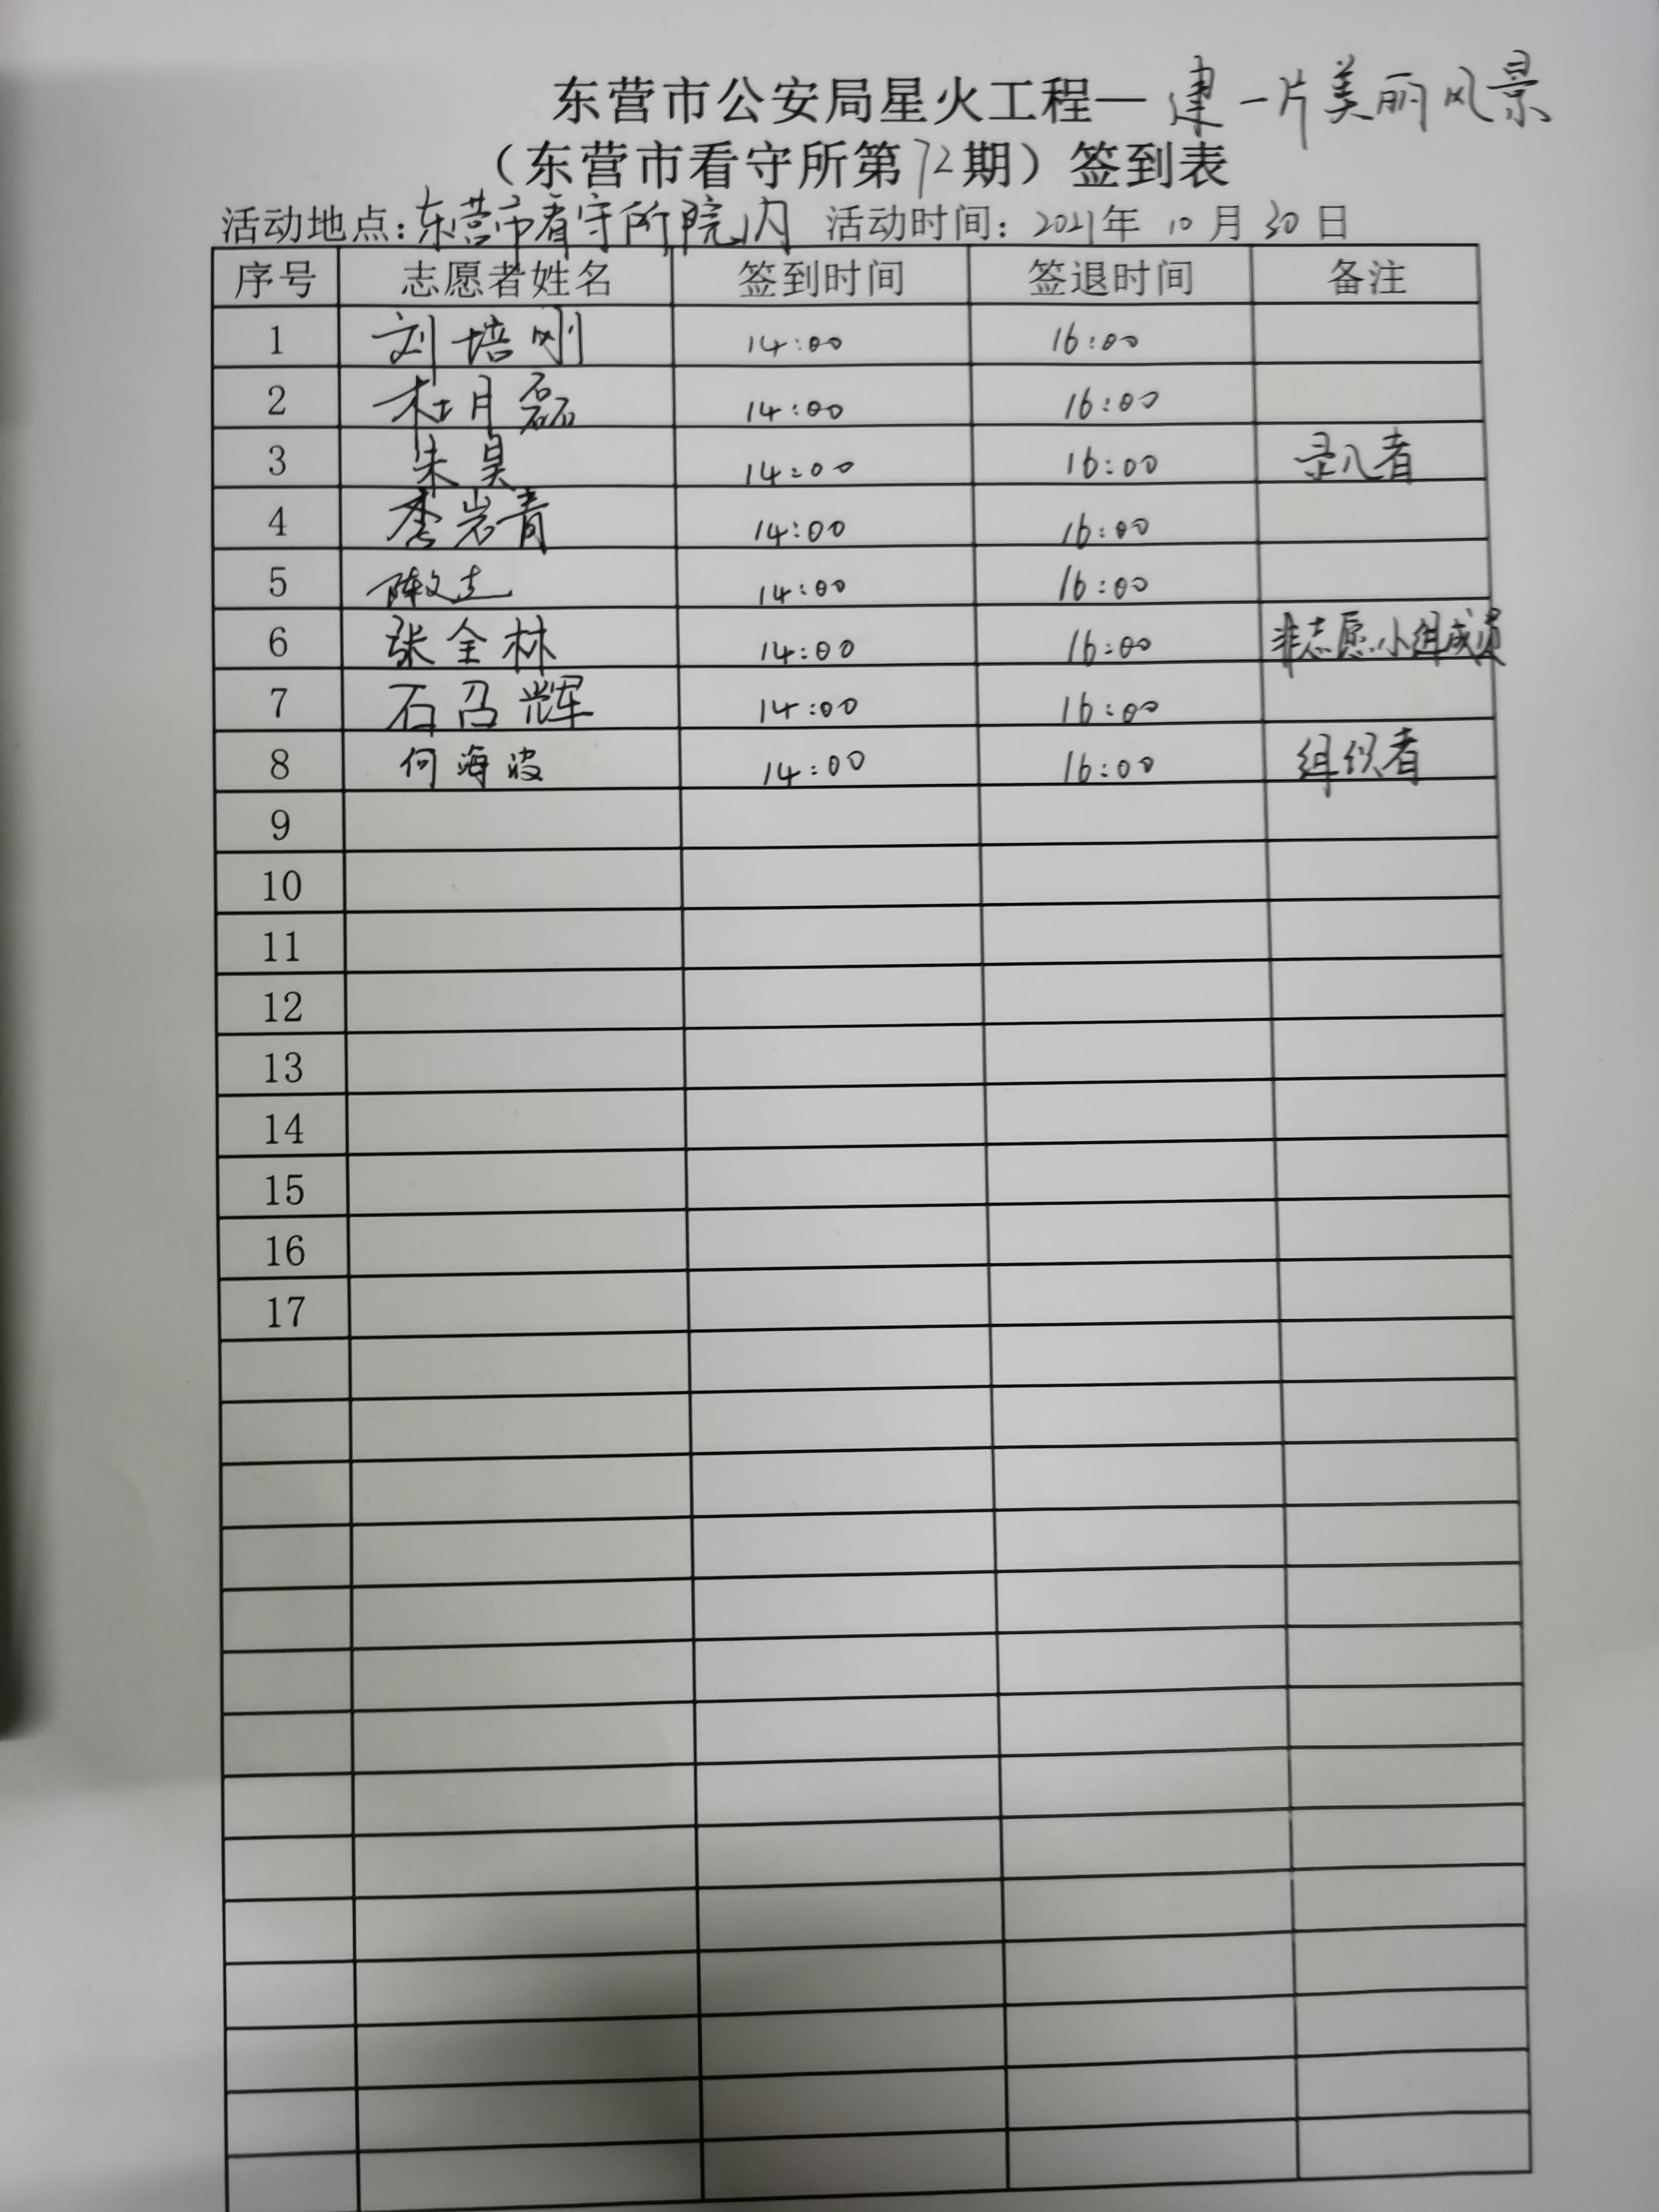 东营市公安局星火工程—建一片美丽风景
（东营市看守所第72期）签到表
活动地点：东营市看守所院内 活动时间：2021年 10月 30日
序号 志愿者姓名 签到时间 签退时间 备注
1 刘培刚 14:00 16:00
2 杜月磊 14:00 16:00
3 朱昊 14:00 16:00 录入者
4 李岩青 14:00 16:00
5 陈文志 14:00 16:00
6 张全林 14:00 16:00 非志愿小组成员
7 石召辉 14:00 16:00
8 何海波 14:00 16:00 组织者
9
10
11
12
13
14
15
16
17